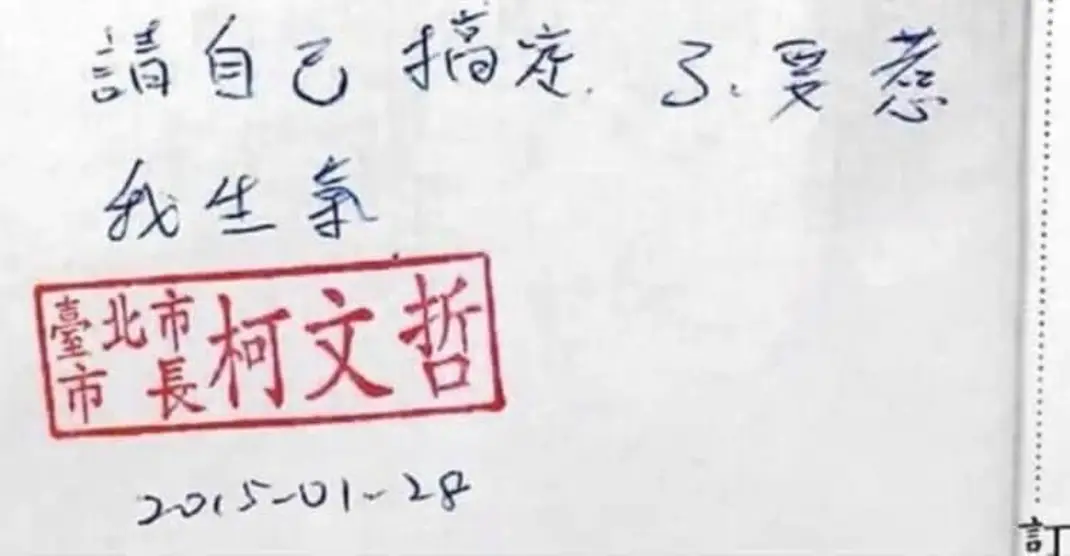 請自己搞定. 不要惹
我生氣
臺北市
市長柯文哲
2015-01-28
訂